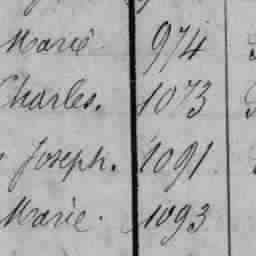 Marie 974
Charles. 1073
Joseph. 1091
Marie. 1093